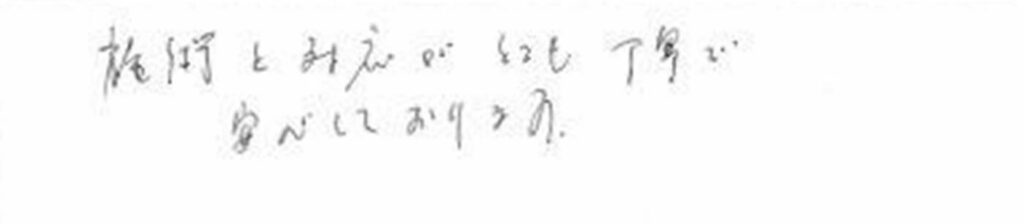 施術と対応がとても丁寧で
安心しております。